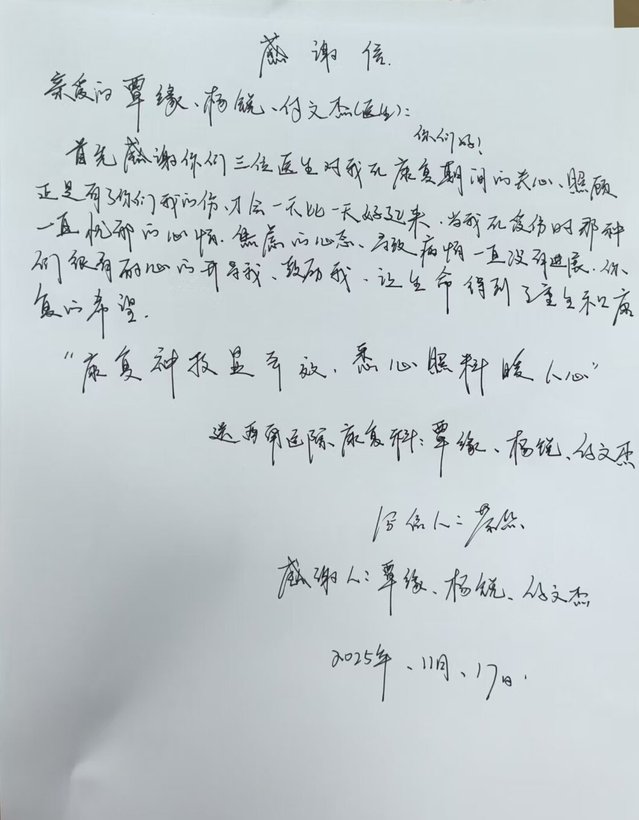 感谢信
亲爱的覃缘、杨锐、付文杰(医生):
你们好!
首先感谢你们三位医生对我在康复期间的关心、照顾
正是有了你们我的伤,才会一天比一天好了起来,当我在受伤时那种
一直忧郁的心情,焦虑的心态,导致病情一直没有进展,你
们很有耐心的开导我、鼓励我、让生命得到了重生和康
复的希望.
“康复神技显奇效,悉心照料暖人心”
送西南医院康复科:覃缘、杨锐、付文杰
写信人:
感谢人:覃缘、杨锐、付文杰
2025年、11月、17日.